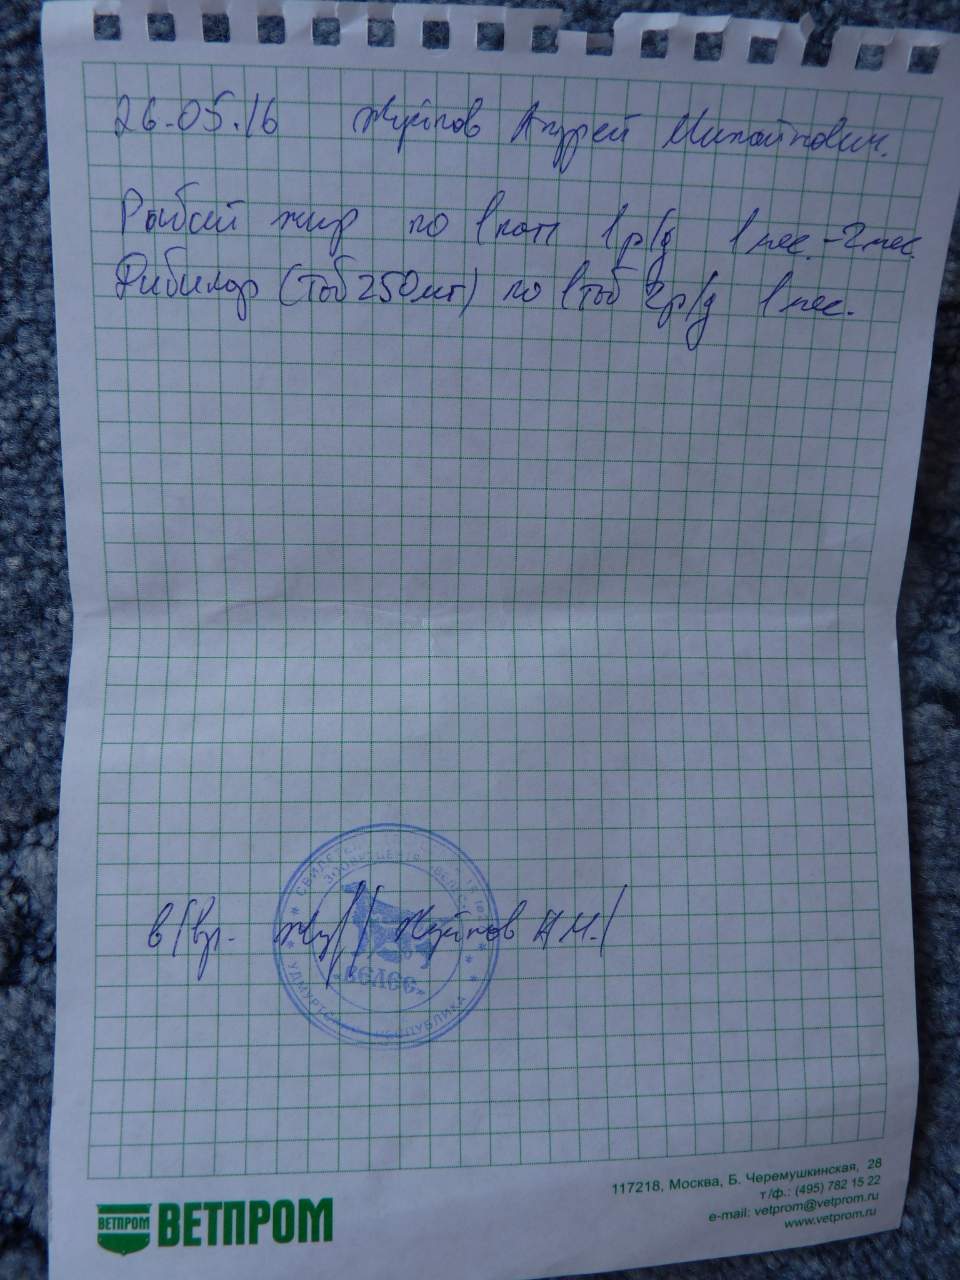 26.05.16 Жуйков Андрей Михайлович.
Рыбий жир по 1 капс 1 р/д 1 мес.-2 мес.
(таб 250мг) по 1 таб 2 р/д 1 мес.
в/вр. /Жуйков А.М./
ЗООВЕТЦЕНТР "ВЕЛЕС"
"ВЕЛЕС"
УДМУРТСКАЯ РЕСПУБЛИКА
ВЕТПРОМ ВЕТПРОМ
117218, Москва, Б. Черемушкинская, 28
т/ф.: (495) 782 15 22
e-mail: vetprom@vetprom.ru
www.vetprom.ru